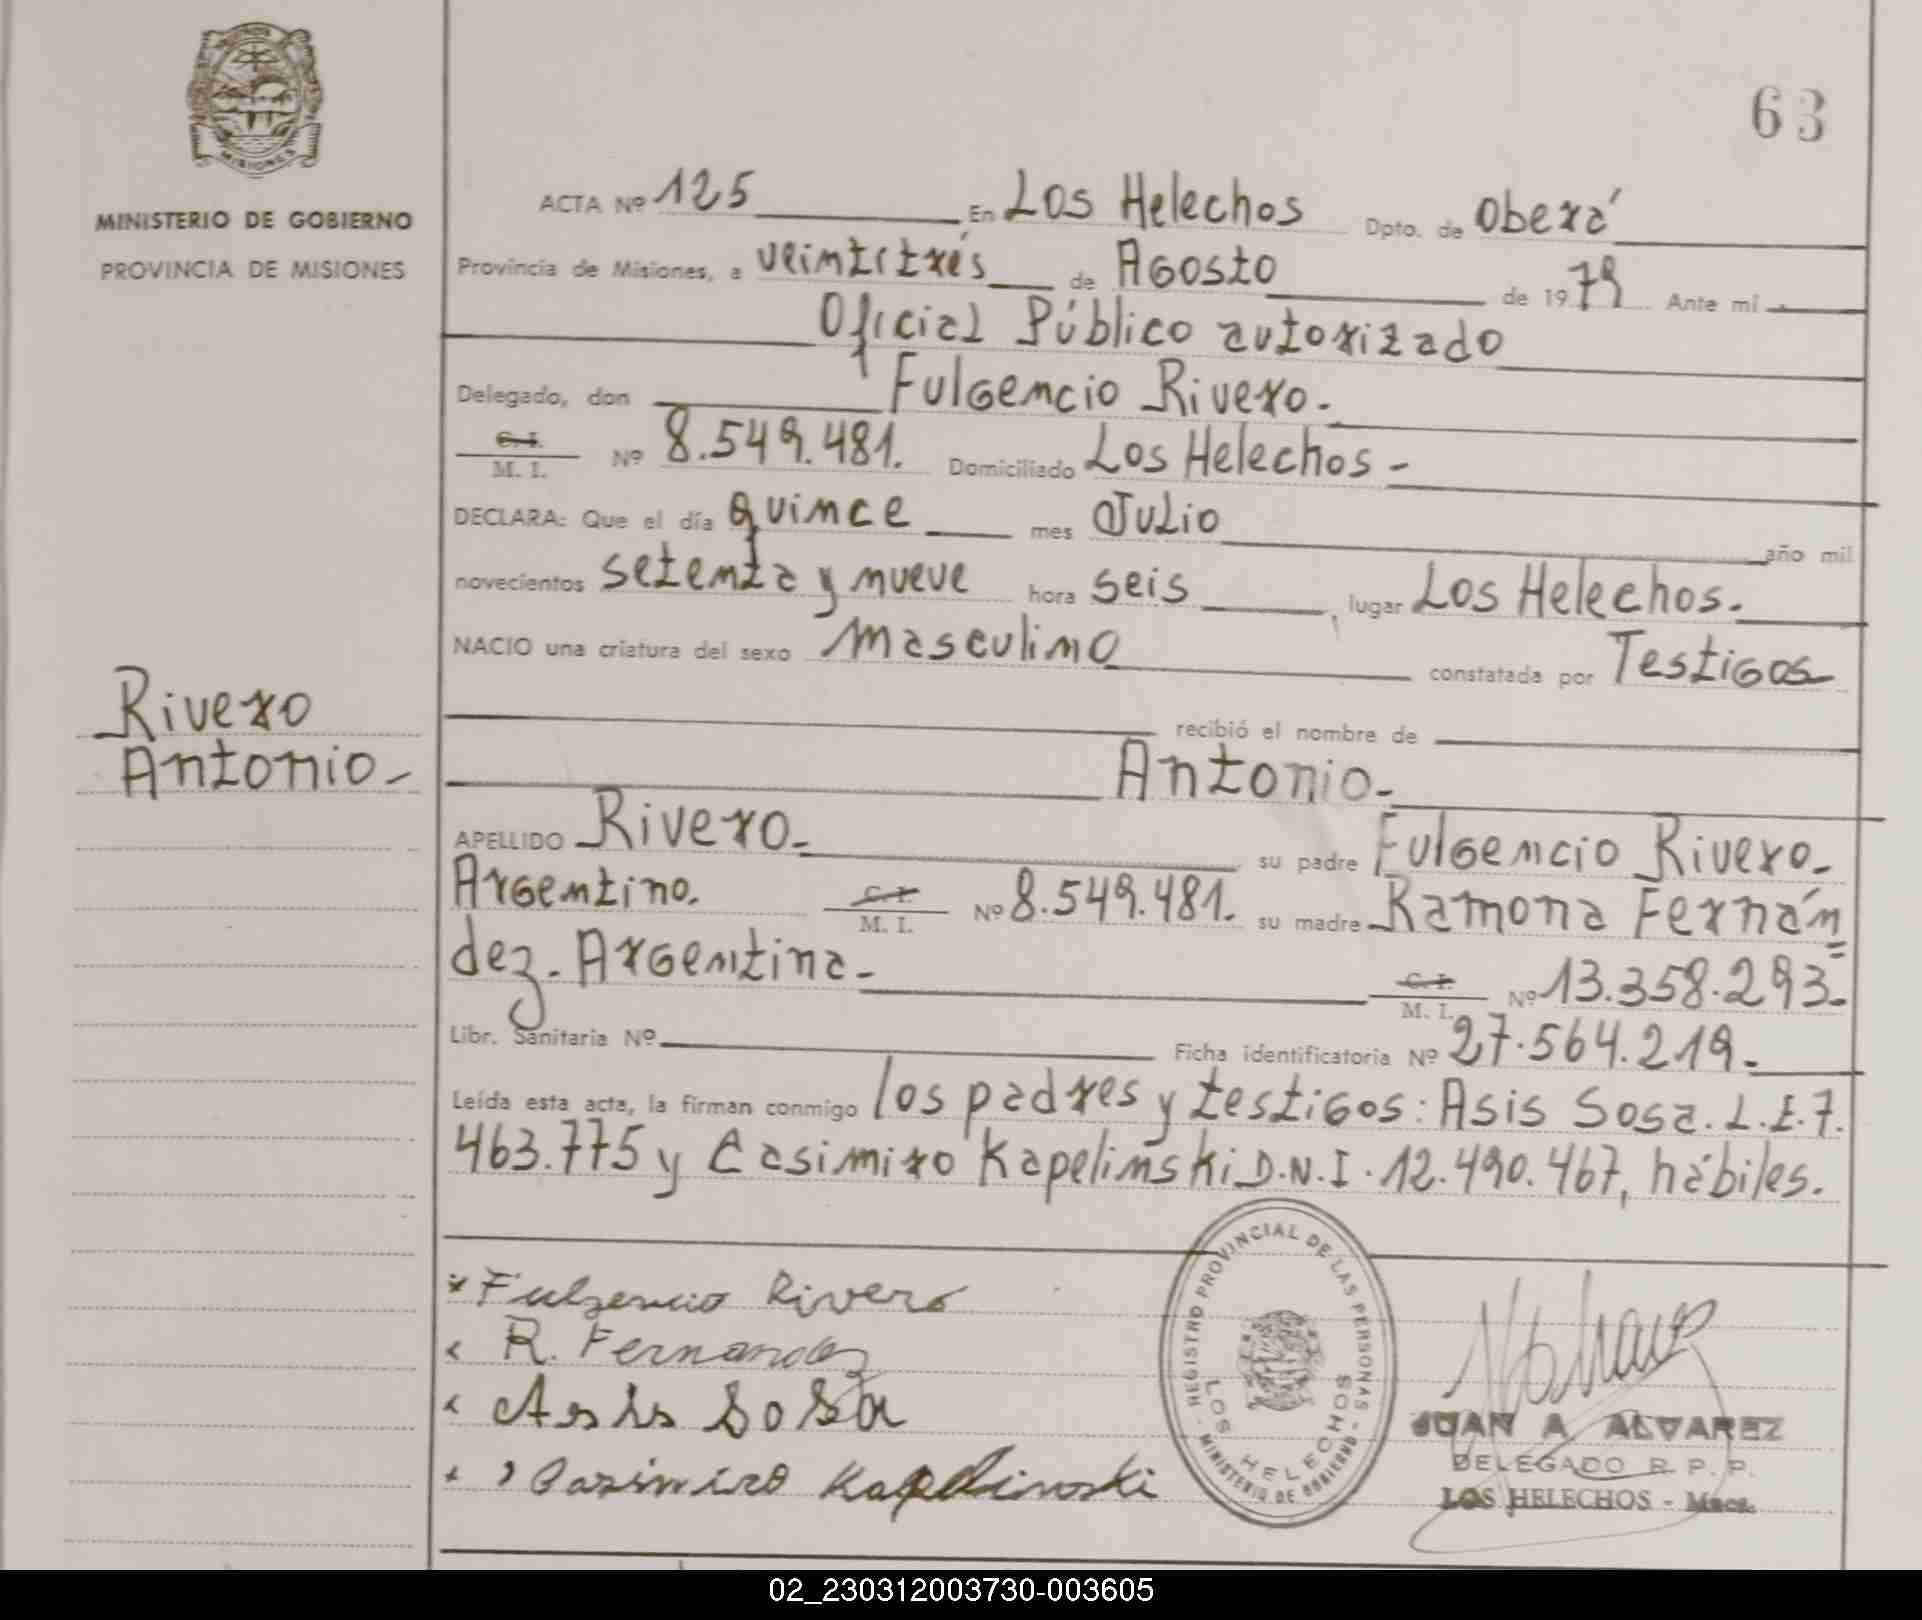 63
MISIONES
MINISTERIO DE GOBIERNO
PROVINCIA DE MISIONES
ACTA Nº 125 En Los Helechos Dpto. de Oberá
Provincia de Misiones, a veintitrés de Agosto de 1979 Ante mí
Oficial Público autorizado
Delegado, don Fulgencio Rivero.
C. I.
M. I. Nº 8.549.481. Domiciliado Los Helechos -
DECLARA: Que el día quince mes Julio año mil
novecientos setenta y nueve hora seis, lugar Los Helechos.
NACIO una criatura del sexo masculino constatada por Testigos
recibió el nombre de
Rivero
Antonio-
Antonio-
APELLIDO Rivero- su padre Fulgencio Rivero-
Argentino. C. I. M. I. Nº 8.549.481. su madre Ramona Fernán=
dez. Argentina- C. I. M. I. Nº 13.358.293-
Libr. Sanitaria Nº Ficha identificatoria Nº 27.564.219-
Leída esta acta, la firman conmigo los padres y testigos: Asis Sosa. L.E.7.
463.775 y Casimiro Kapelinski D.N.I. 12.490.467, hábiles.
Fulgencio Rivero
R. Fernandez
Asis Sosa
Casimiro Kapelinski
REGISTRO PROVINCIAL DE LAS PERSONAS
LOS HELECHOS
MINISTERIO DE GOBIERNO
JUAN A ALVAREZ
DELEGADO R. P. P.
LOS HELECHOS - Mnes.
02_230312003730-003605